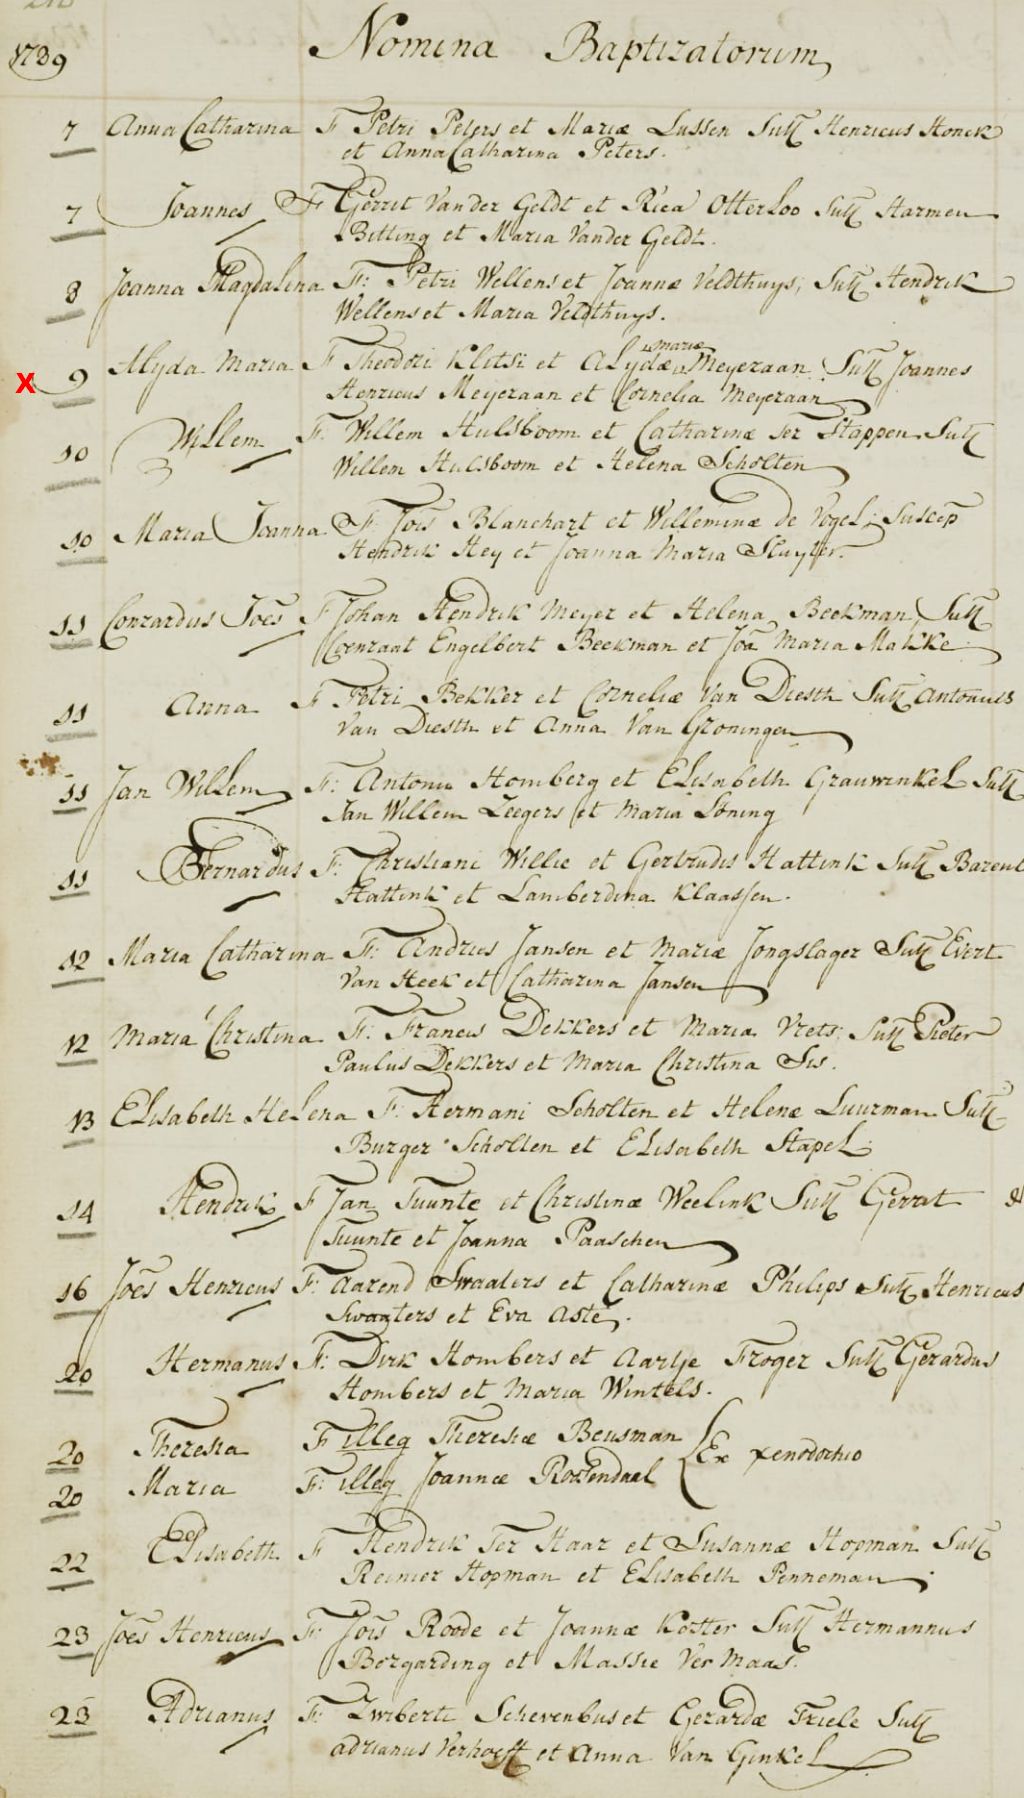 1739
Nomina Baptizatorum
7 Anna Catharina F Petri Peters et Mariæ Lussen Susc Henricus Honck
et Anna Catharina Peters.
7 Joannes F Gerrit Van der Geldt et Rica Otterloo Susc Harmen
Bitting et Maria Vander Geldt.
8 Joanna Magdalena F: Petri Wellens et Joannæ Veldthuys; Susc Hendrik
Wellens et Maria Veldthuys.
mariæ
X 9 Alyda Maria F Theodori Klitsi et Alydæ Meyeraan Susc Joannes
Henricus Meyeraan et Cornelia Meyeraan
10 Willem F. Willem Hulsboom et Catharinæ ter Stappen Susc
Willem Hulsboom et Helena Scholten
10 Maria Joanna F. Jois Blanchart et Willeminæ de Vogel; Suscep
Hendrik Hey et Joanna Maria Sluyter.
11 Conrardus Joes F Johan Hendrik Meyer et Helena Beekman Susc
Coenraat Engelbert Beekman et Joa Maria Makke
11 Anna F Petri Bekker et Corneliæ Van Diesth Susc Antonius
Van Diesth et Anna Van Groningen
11 Jan Willem F: Antonii Homberg et Elisabeth Grauwinkel Susc
Jan Willem Zeegers et Maria Löning
11 Bernardus F: Christiani Willie et Gertrudis Hattink Susc Barent
Hattink et Lamberdina Klaassen.
12 Maria Catharina F: Andries Jansen et Mariæ Jongslager Susc Evert
Van Heek et Catharina Jansen
12 Maria Christina F: Francis Dekkers et Maria Vrets; Susc Pieter
Paulus Dekkers et Maria Christina Sis.
13 Elisabeth Helena F: Hermani Scholten et Helenæ Luurman Susc
Burger Scholten et Elisabeth Stapel
14 Hendrik F Jan Tuunte et Christinæ Weelink Susc Gerrit
Tuunte et Joanna Paaschen
16 Joes Henricus F: Aarend Swaaters et Catharinæ Philips Susc Henricus
Swaaters et Eva Aste.
20 Hermanus F: Dirk Hombers et Aartje Froger Susc Gerardus
Hombers et Maria Wintels.
20 Theresia F illeg Theresiæ Beusman
Ex xenodochio
20 Maria F: illeg Joannæ Rozendaal
22 Elisabeth F Hendrik Ter Haar et Susannæ Hopman Susc
Reinier Hopman et Elisabeth Penneman
23 Joes Henricus F: Jois Roode et Joannæ Kotter Susc Hermannus
Borgarding et Massie Ver Maas.
23 Adrianus F: Zwiberti Schevenbus et Gerardæ Friele Susc
Adrianus Verhoeff et Anna Van Ginkel